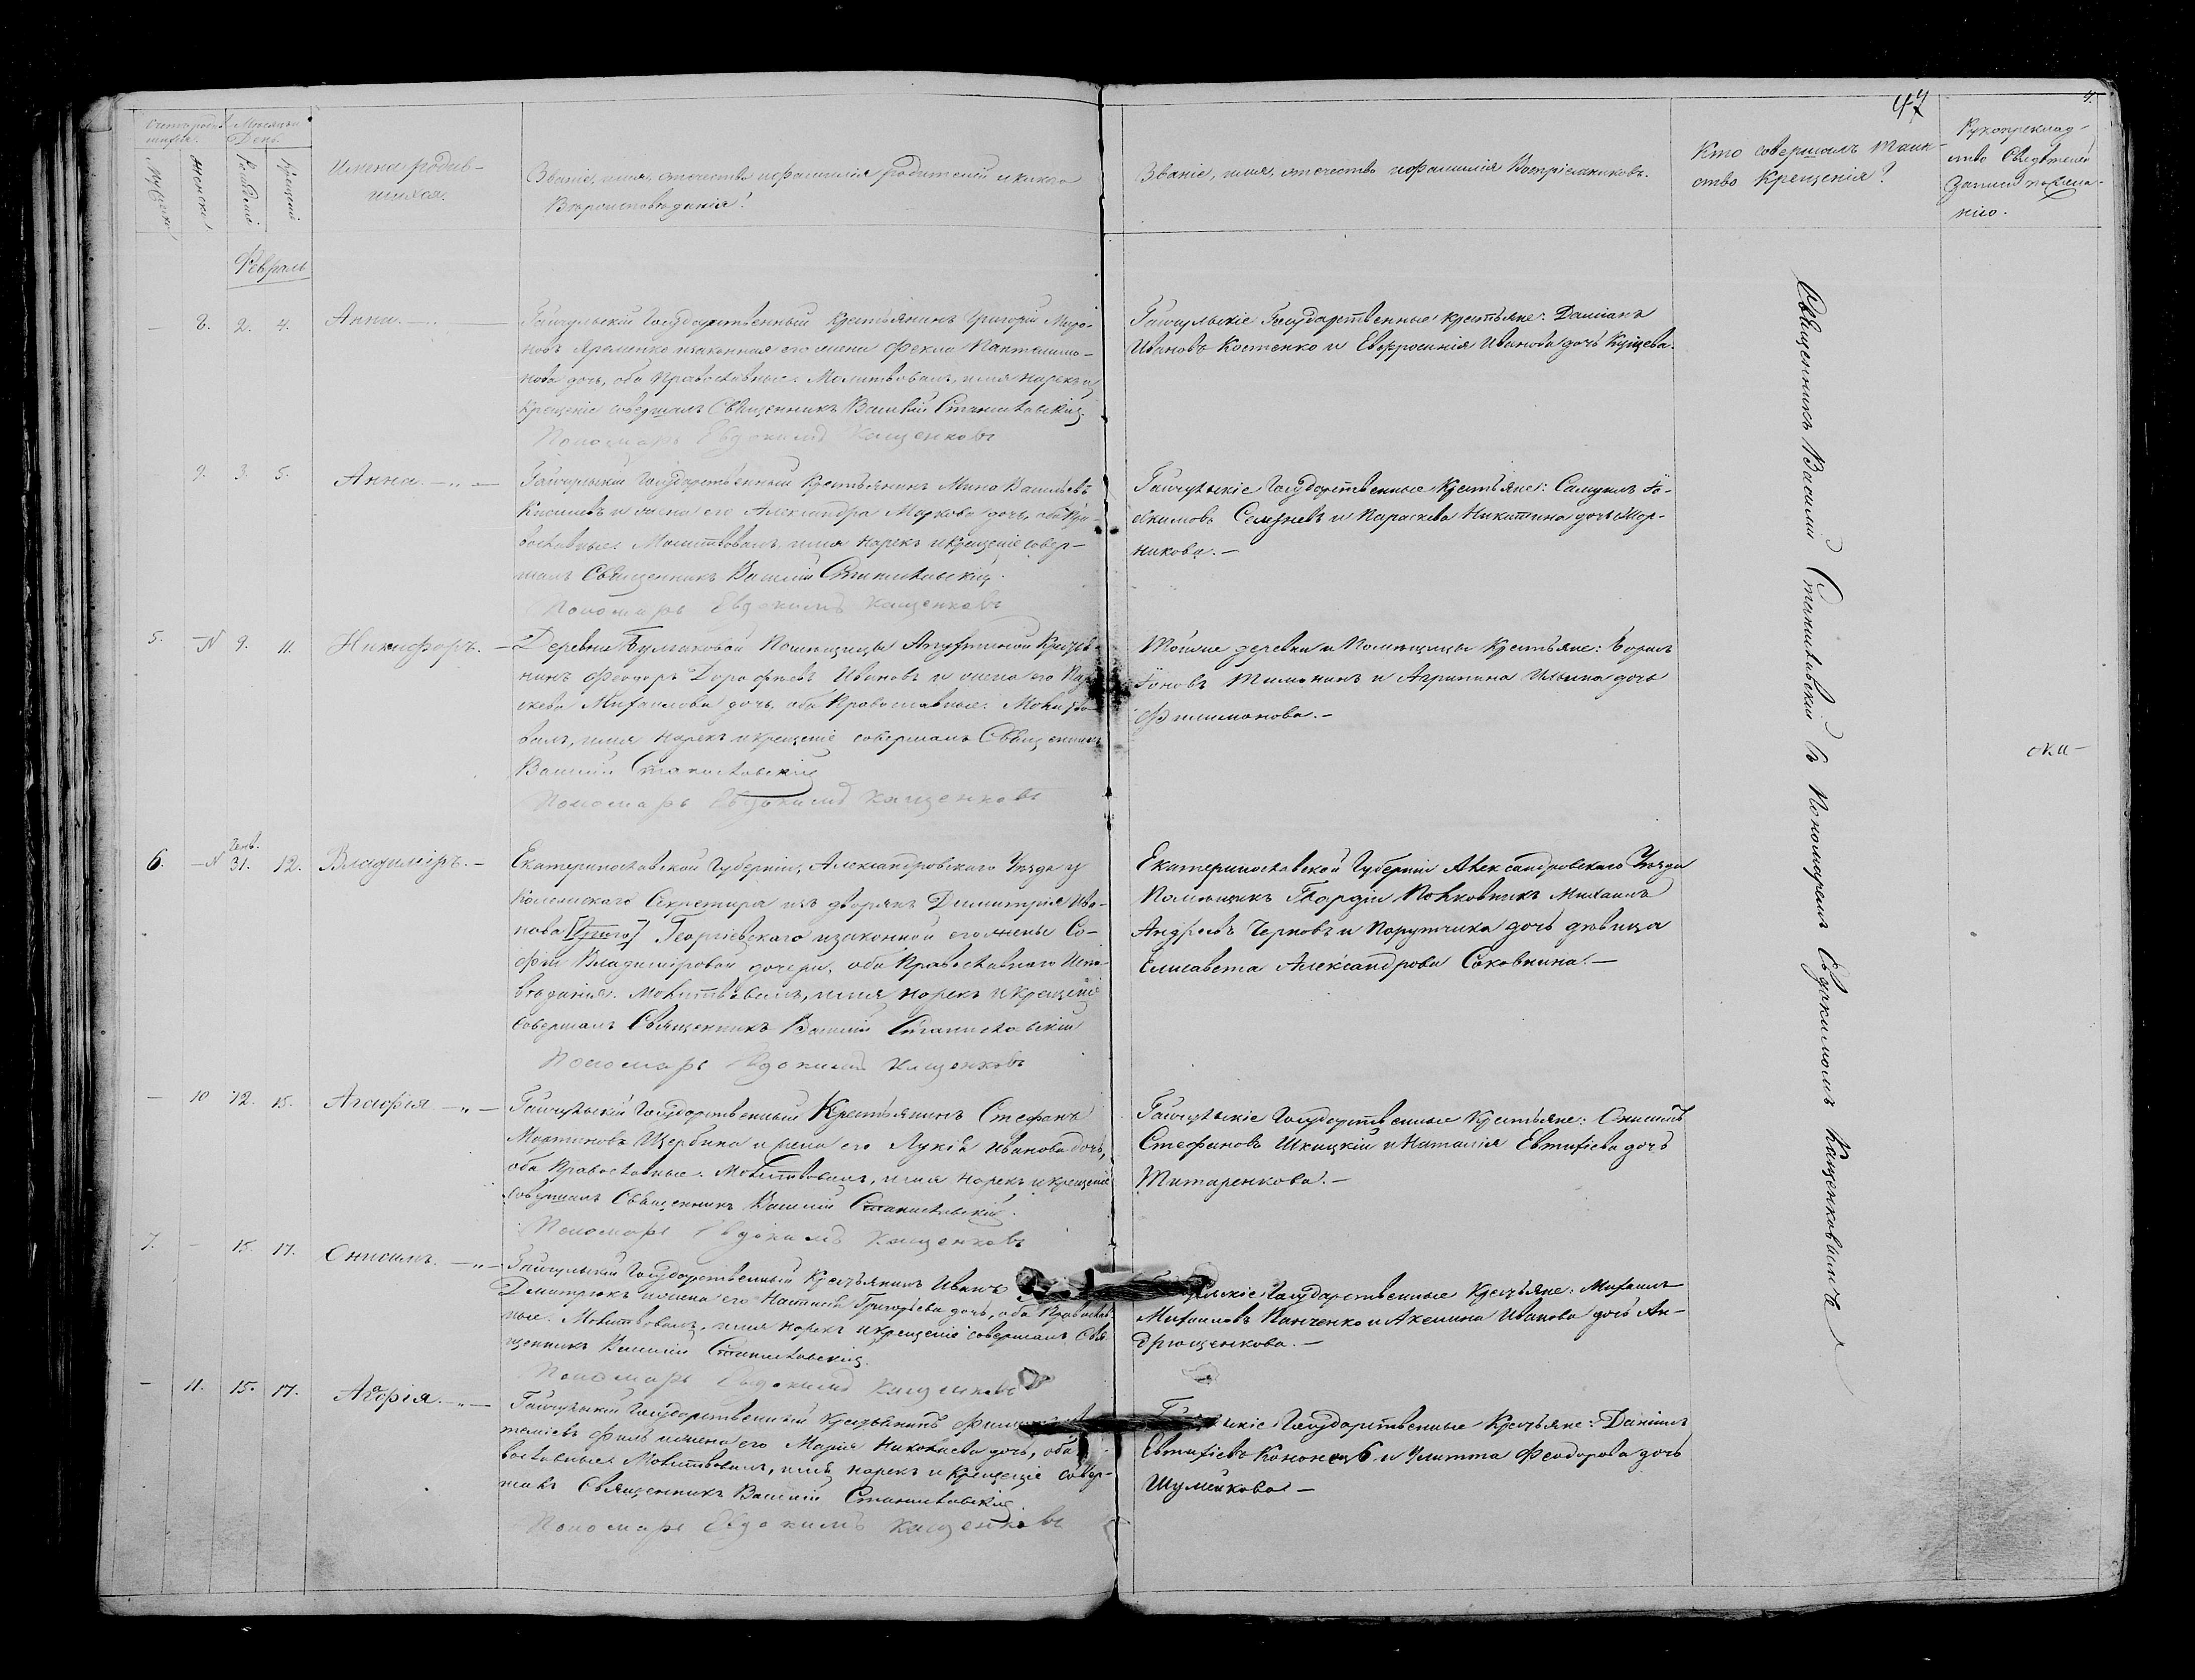 47
4.
Счетъ родив-
шихся.
Мѣсяцъ и
День.
Мужеска
Женска
Рожденія
Крещенія
Имена родив-
шихся.
Званіе, имя, отчество и фамилія родителей и какого
Вѣроисповѣданія?
Званіе, имя, отчество и фамилія Воспріемниковъ.
Кто совершалъ Таин-
ство Крещенія?
Рукоприклад-
ство Свидѣтелей
Записи по жела-
нію.
Февраль
– 8. 2. 4. Анна.
Гайчульскій Государственный Крестьянинъ Григорій Миро-
новъ Яременко и законная его жена Фекла Пантелимо-
нова дочь, оба Православные. Молитвовалъ, имя нарекъ и
Крещеніе совершалъ Священникъ Василій Станиславскій
Пономарь Евдокимъ Кащенковъ
Гайчульскіе Государственные Крестьяне: Даміанъ
Ивановъ Костенко и Евфросинія Иванова дочь Куцева.
9. 3. 5. Анна.
Гайчульскій Государственный Крестьянинъ Мина Васильевъ
Киселевъ и жена его Александра Маркова дочь, оба Пра-
вославные. Молитвовалъ, имя нарекъ и Крещеніе совер-
шалъ Священникъ Василій Станиславскій.
Пономарь Евдокимъ Кащенковъ
Гайчульскіе Государственные Крестьяне: Самуилъ Іо-
акимовъ Селезневъ и Параскева Никитина дочь
никова.
5. – 9. 11. Никифоръ.
Деревни Помѣщицы Крестья-
нинъ Феодоръ Дорофѣевъ Ивановъ и жена его Пара-
скева Михаилова дочь, оба Православные. Молитво-
валъ, имя нарекъ и Крещеніе совершалъ Священникъ
Василій Станиславскій
Пономарь Евдокимъ Кащенковъ
Тойже деревни и Помѣщицы Крестьяне: Борисъ
Іоновъ и Агрипина Ильина дочь
Филимонова.
6. – Генв. 31. 12. Владиміръ.
Екатеринославской Губерніи, Александровскаго Уѣзда у
Колежскаго Секретаря изъ дворянъ Димитрія Ива-
нова Георгіевскаго и законной его жены Со-
фіи Владиміровой дочери, оба Православнаго Испо-
вѣданія. Молитвовалъ, имя нарекъ и Крещеніе
Совершалъ Священникъ Василій Станиславскій
Пономарь Евдокимъ Кащенковъ
Екатеринославской Губерніи Александровскаго Уѣзда
Помѣщикъ Гвардіи Полковникъ Михаилъ
Андреевъ Черновъ и Порутчика дочь дѣвица
Елисавета Александрова Саковнина.
– 10 12. 15. Агафія
Гайчульскій Государственный Крестьянинъ Стефанъ
Мартиновъ Щербина и жена его Лукія Иванова дочь,
оба Православные. Молитвовалъ, имя нарекъ и Крещеніе
Совершалъ Священникъ Василій Станиславскій.
Пономарь Евдокимъ Кащенковъ
Гайчульскіе Государственные Крестьяне: Онисимъ
Стефановъ Шкицкій и Наталія Евтихіева дочь
Титаренкова.
7. – 15. 17. Онисимъ.
Гайчульскій Государственный Крестьянинъ Иванъ
Дмитрюкъ и жена его Наталія Григорьева дочь, оба Православ-
ные. Молитвовалъ, имя нарекъ и крещеніе совершалъ Свя-
щенникъ Василій Станиславскій.
Пономарь Евдокимъ Кащенковъ
Государственные Крестьяне: Михаилъ
Михаиловъ Панченко и Акелина Иванова дочь Ан-
дрющенкова.
– 11. 15. 17. Агафія.
Гайчульскій Государственный Крестьянинъ
жена его Марія Николаева дочь, оба
вославные. Молитвовалъ, имя нарекъ и Крещеніе совер-
шалъ Священникъ Василій Станиславскій.
Пономарь Евдокимъ Кащенковъ
Государственные Крестьяне: Даніилъ
Евтихіевъ Кононецъ и Улитта Феодорова дочь
Шумейкова
Священникъ Василій Станиславскій съ Пономаремъ Евдокимомъ Кащенковымъ